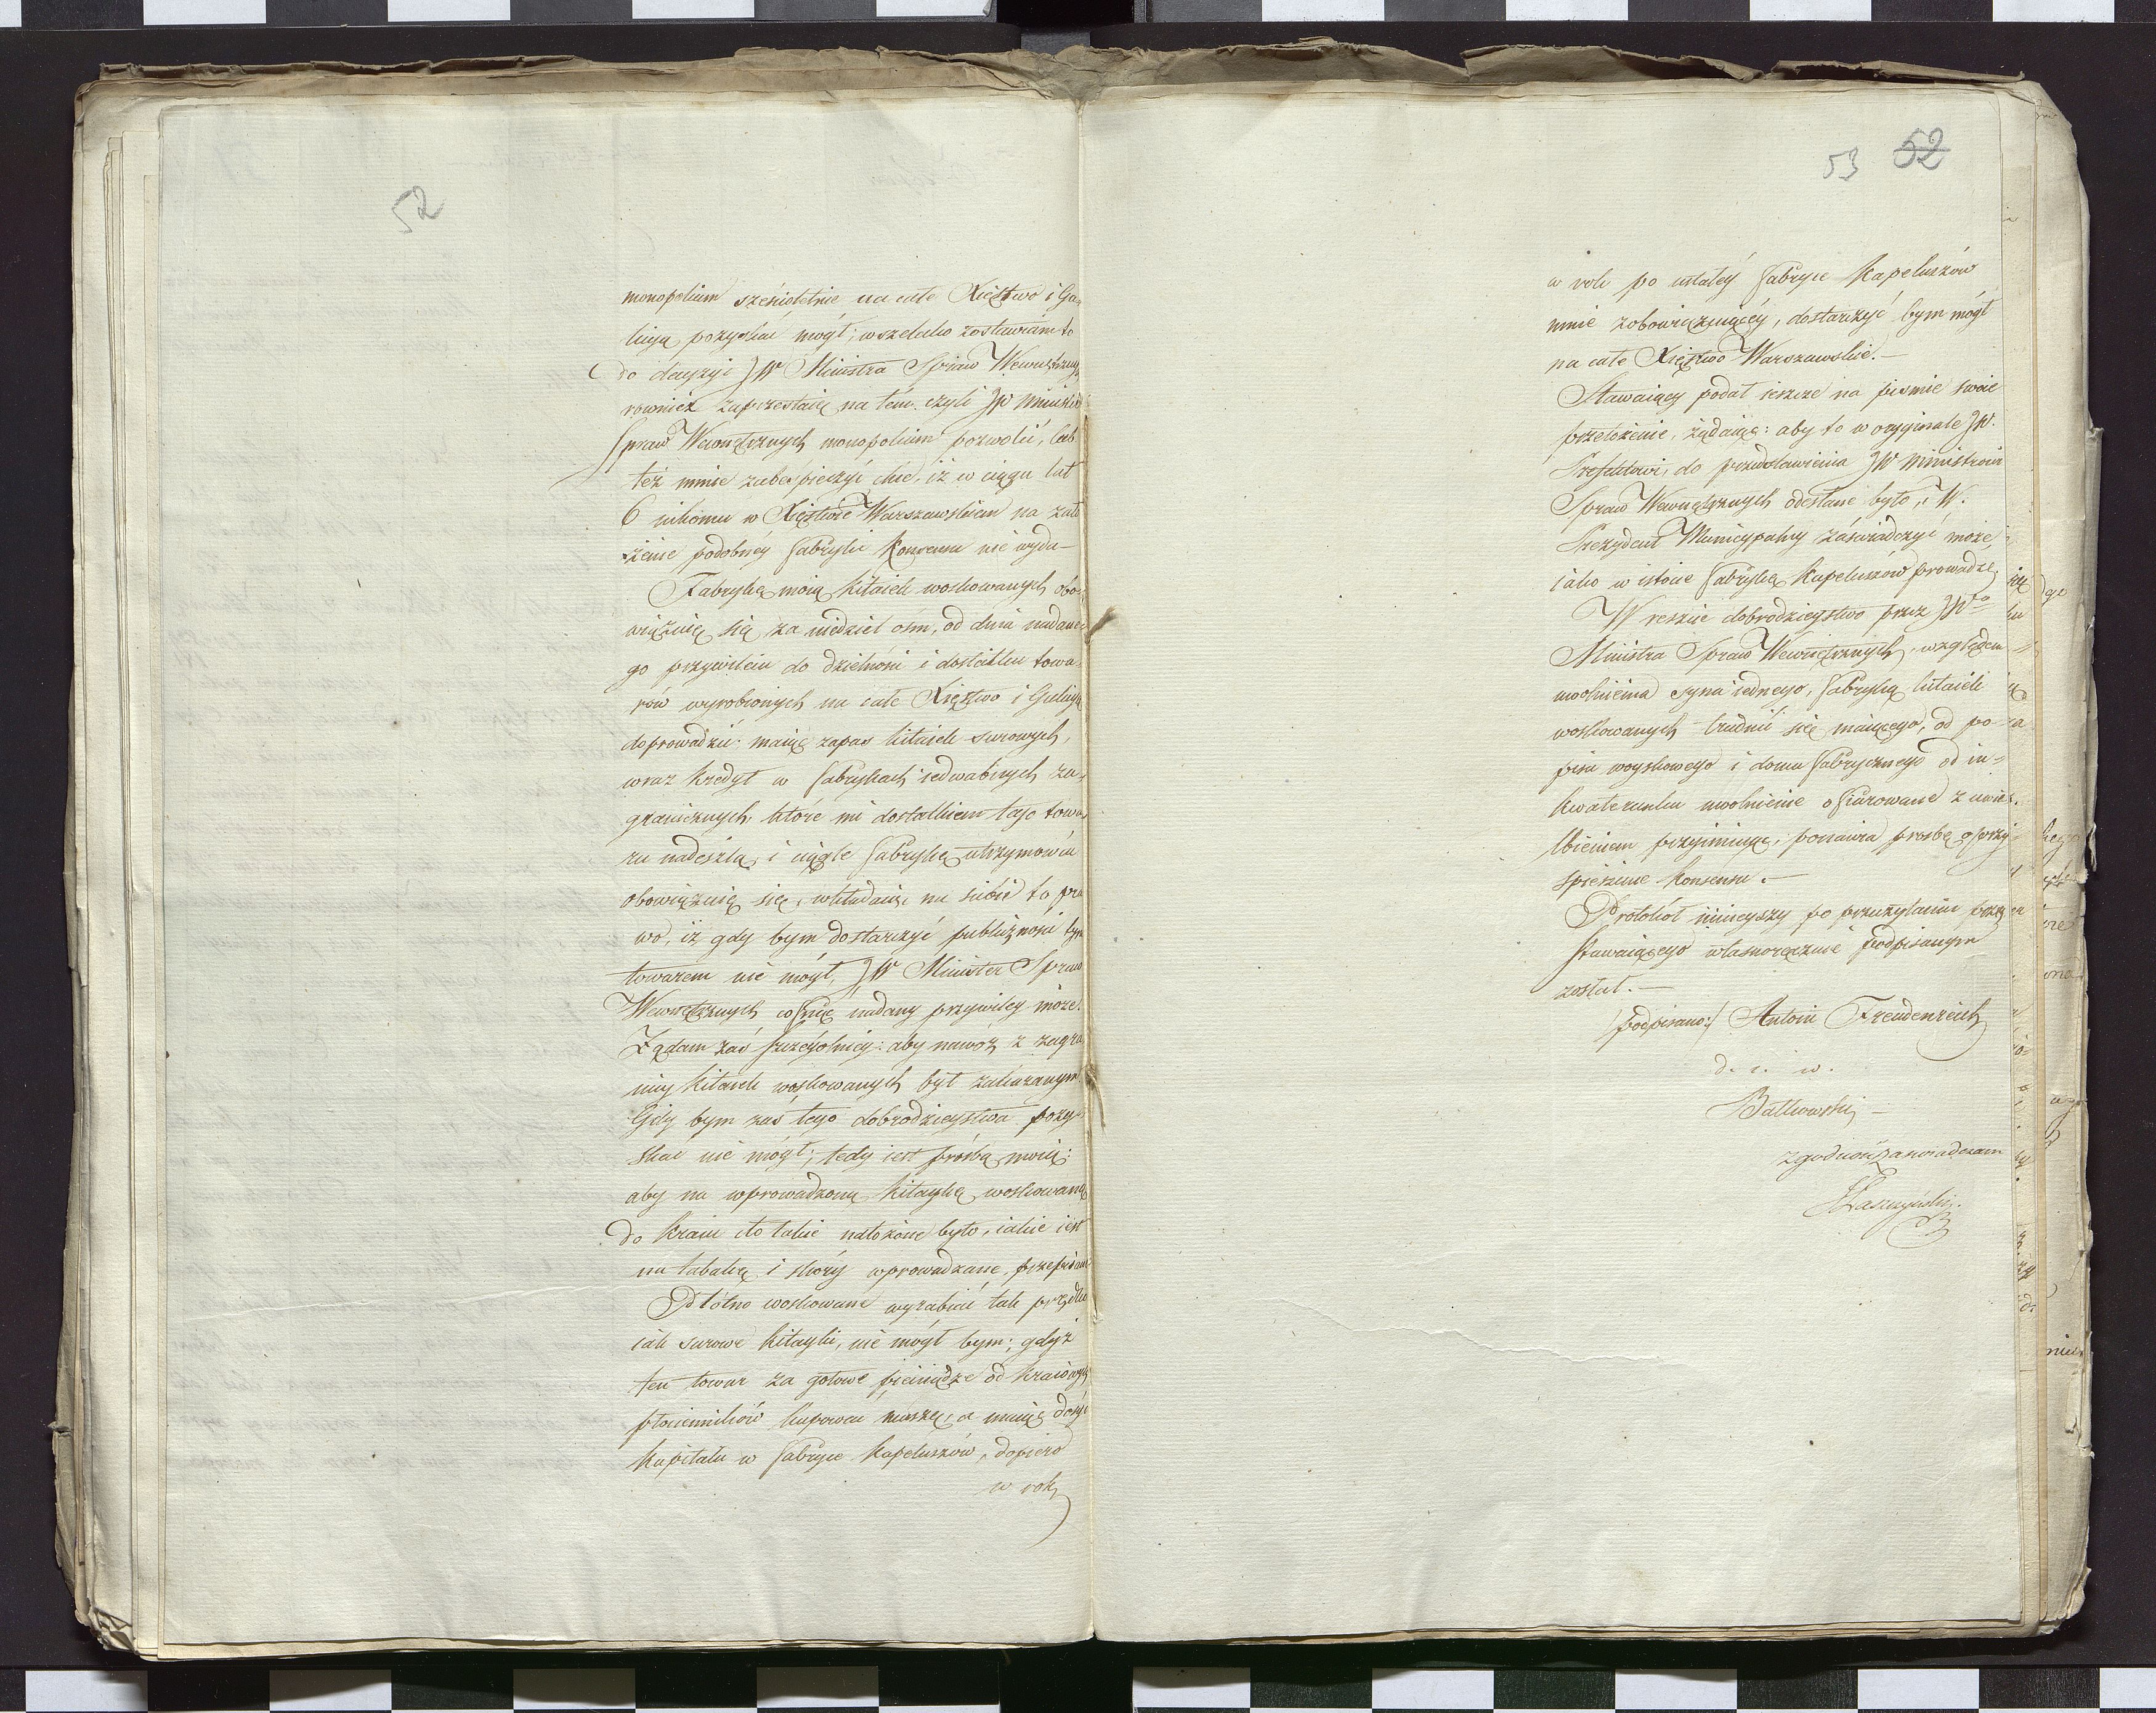 52
monopolium sześcioletnie na całe Xięstwo i Ga-
licyą pozyskać mógł; wszelako zostawiam to
do decyzyi JW Ministra Spraw Wewnętrznych
rownież zaprzestaię na tém. czyli JW Minister
Spraw Wewnętrznych monopolium pozwolić, lub
też mnie zabespieczyć chce, iż w ciągu lat
6 nikomu w Xięstwie Warszawskiem na zało
żenie podobnéy fabryki Konsensu nie wyda—
Fabrykę moią kitaiek woskowanych obo-
wiązuię się za niedziel ośm, od dnia nadane-
go przywileiu do dzielności i dostatku towa-
rów wyrobionych na całe Xięstwo i Galicyą
doprowadzić: maiąc zapas kitaiek surowych,
wraz kredyt w fabrykach iedwabnych za-
granicznych, które mi dostatkiem tego towa-
ru nadeszlą, i ciągle fabrykę utrzymować
obowiązuię się, wkładaiąc na siebie to pra
wo, iż gdy bym dostarczyć publiczności tym
towarem nie mógł, JW Minister Spraw
Wewnętrznych cofnąć nadany przywiley może.
Żądam zaś szczególniey: aby nawóz z zagra
nicy kitaiek woskowanych był zakazanym.
Gdy bym zaś tego dobrodzieystwa pozy-
skać nie mógł; tedy iest prośbą moią:
aby na wprowadzoną kitaykę woskowaną
do kraiu cło takie nałożone było, iakie iest
na tabakę i skóry wprowadzane, przepisane
Płótno woskowane wyrabiać tak prędko
iak surowe kitayki, nie mógł bym; gdyż
ten towar za gotowe pieniądze od kraiowych
płócienników kupować muszę, a maiąc dosyć
kapitału w fabryce kapeluszów, dopiero
w rok
53 52
w rok po ustałéy fabryce kapeluszów
mnie zobowiązuiącéy, dostarczyć bym mógł
na całe Xięstwo Warszawskie.—
Stawaiący podał ieszcze na piśmie swoie
przełożenie, żądaiąc: aby to w oryginale JW.
Prefektowi, do przedstawienia JW Ministrowi
Spraw Wewnętrznych odesłane było, i W.
Prezydent Municypalny zaświadczyć może,
iako w istocie fabrykę kapeluszów prowadzę.
W reszcie dobrodzieystwo przez JWgo
Ministra Spraw Wewnętrznych, względem
uwolnienia syna iednego, fabryką kitaiek
woskowanych trudnić się maiącego, od po-
pisu woyskowego i domu fabrycznego od in-
kwaterunku uwolnienie ofiarowane z uwiel-
bieniem przyimuiąc, ponawia prosbę o przy-
spieszenie konsensu.—
Protokół ninieyszy po przeczytaniu przez
stawaiącego własnoręcznie podpisanym
został.—
/podpisano:/ Antoni Freudenreich
d. i. w.
Batkowski—
zgodność zaświadczam